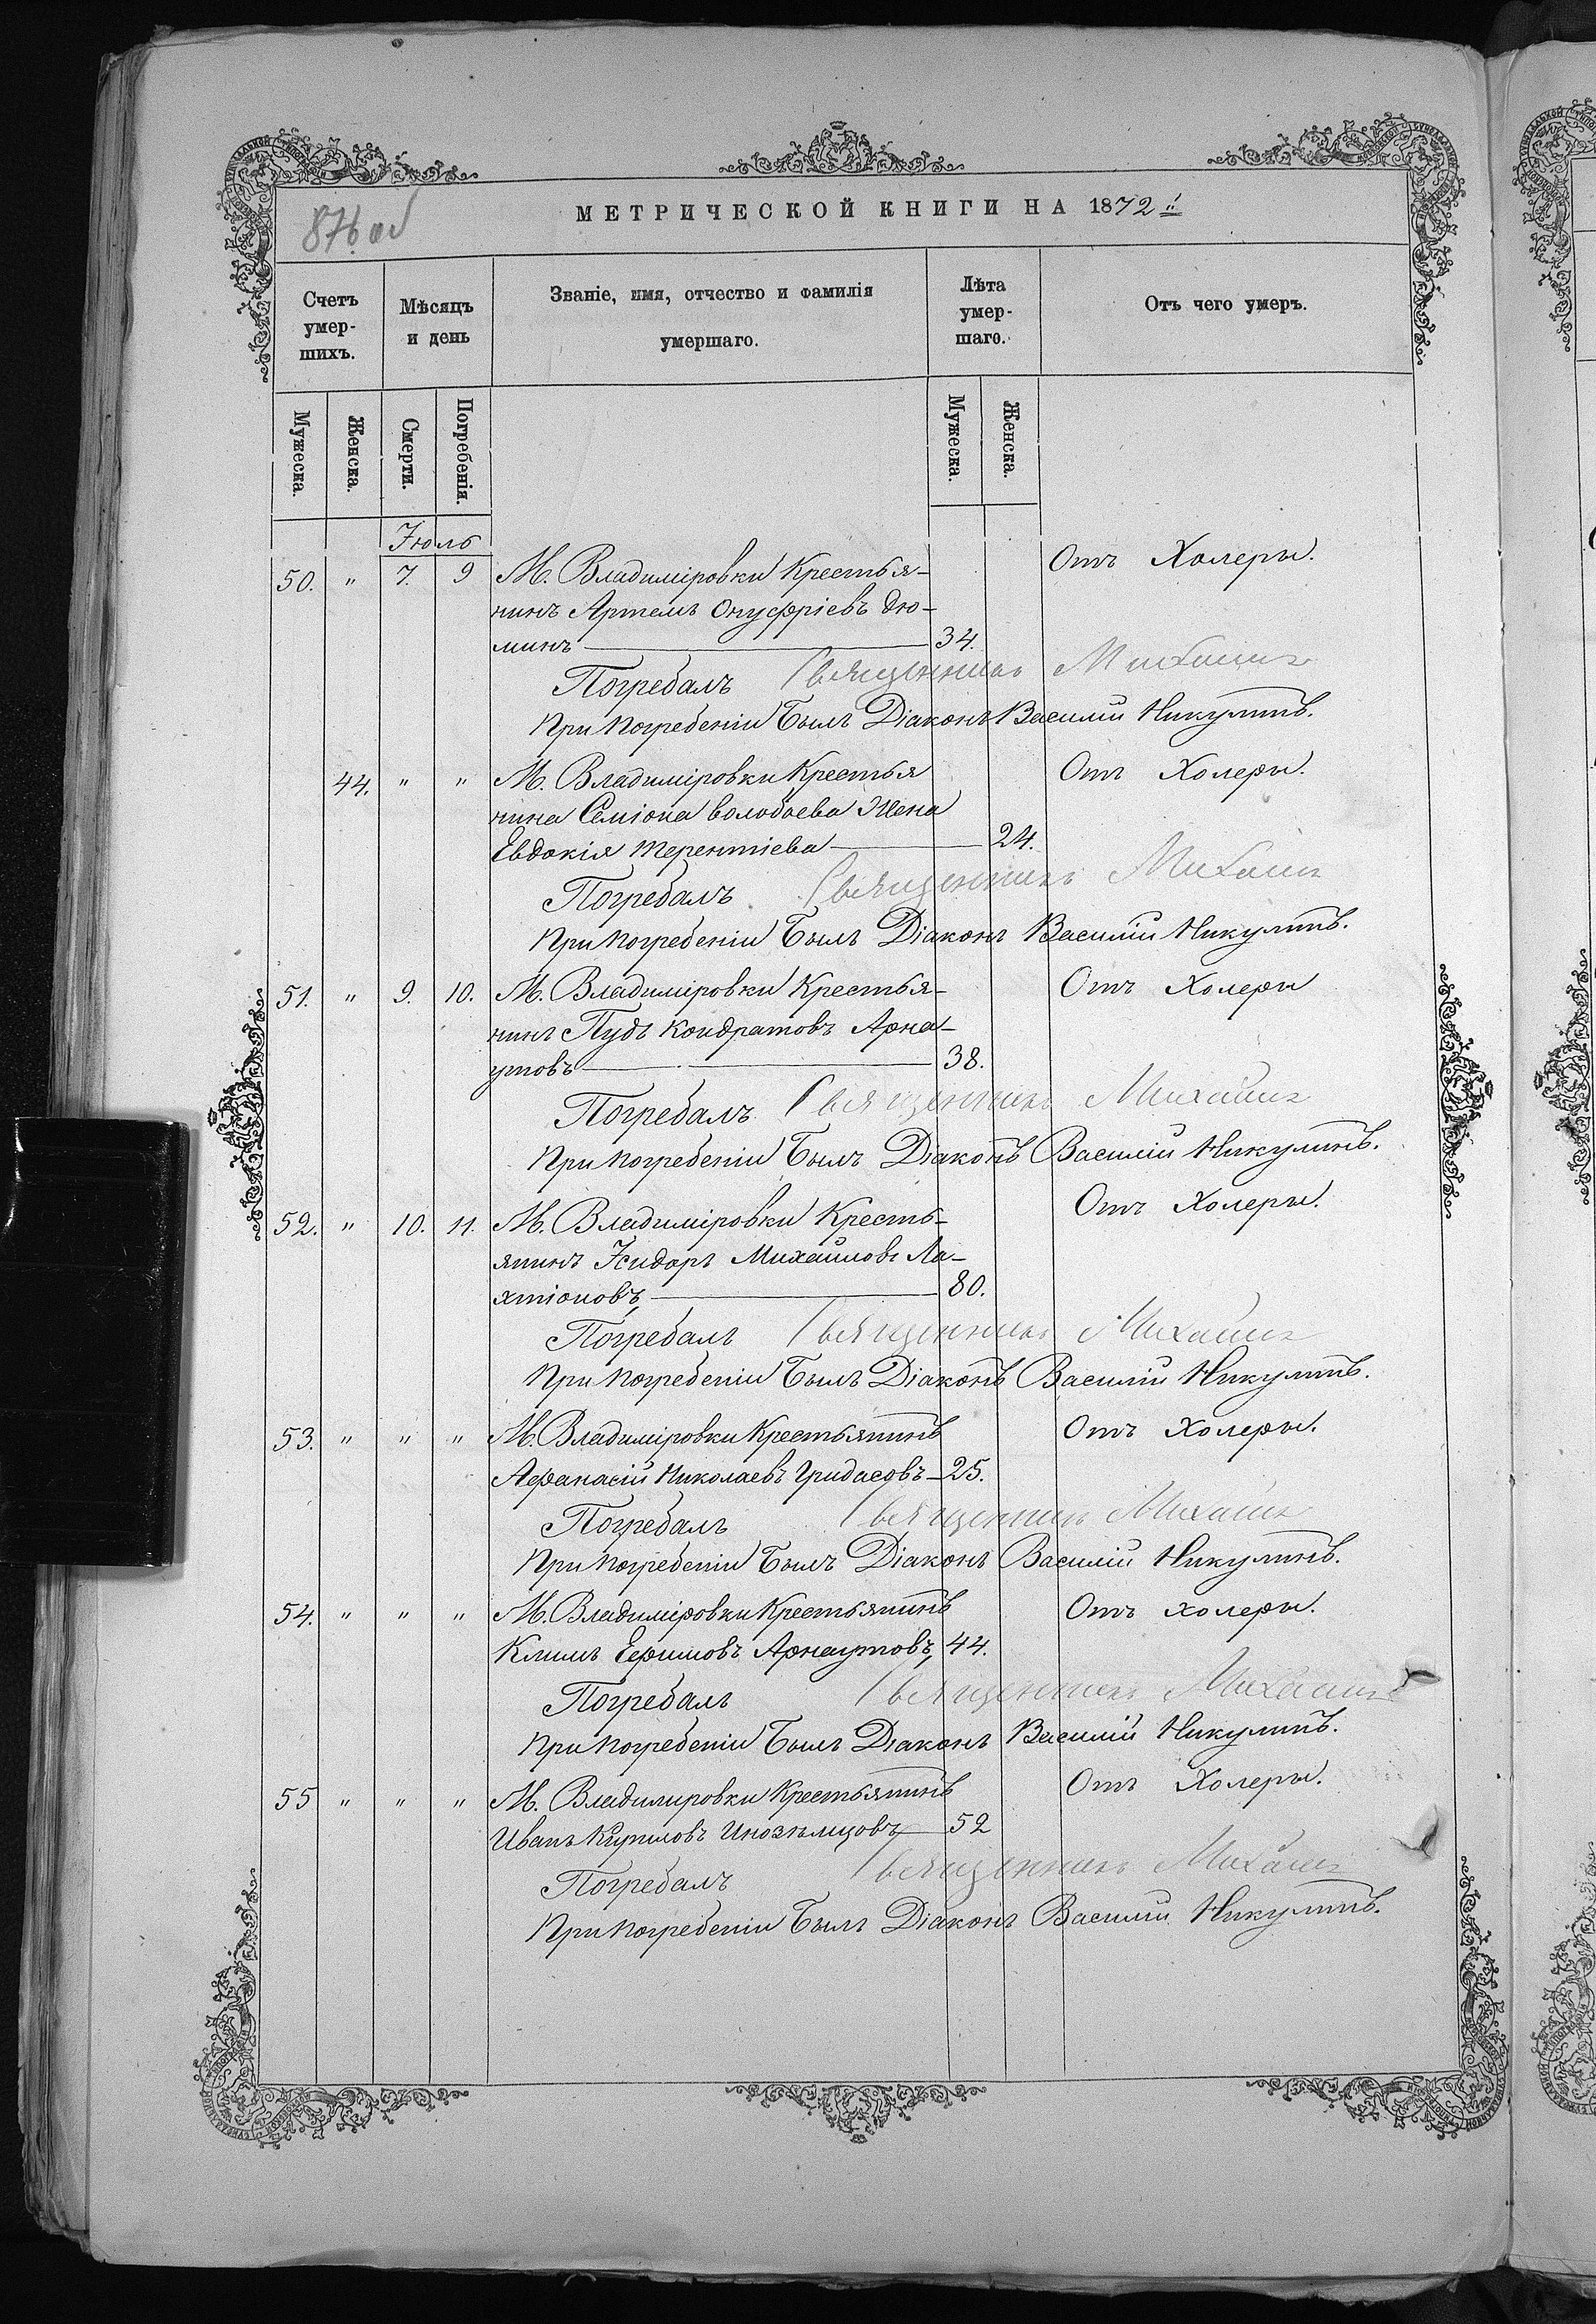 876 об
МЕТРИЧЕСКОЙ КНИГИ НА 1872й
Счетъ умер-шихъ.
Мѣсяцъ и день
Званіе, имя, отчество и фамилія умершаго.
Лѣта умер-шаго.
Отъ чего умеръ.
Мужеска. Женска. Смерти. Погребенія. Мужеска. Женска.
Іюль
50. " 7. 9 М. Владиміровки Крестья- Отъ Холеры.
нинъ Артемъ Онуфріевъ Дю-
минъ 34.
Погребалъ Священникъ Михаилъ
При погребеніи Былъ Діаконъ Василій Никулинъ.
44. " " М. Владиміровки Крестья Отъ Холеры.
нина Семіона Волобоева Жена
Евдокія Терентіева 24.
Погребалъ Священникъ Михаилъ
При погребеніи Былъ Діаконъ Василій Никулинъ.
51. " 9. 10. М. Владиміровки Крестья- Отъ Холеры
нинъ Пудъ Кондратовъ Арна-
утовъ 38.
Погребалъ Священникъ Михаилъ
При погребеніи Былъ Діаконъ Василій Никулинъ.
52. " 10. 11. М. Владиміровки Кресть- Отъ Холеры.
янинъ Исидоръ Михаиловъ Ла-
хтіоновъ, 80.
Погребалъ Священникъ Михаилъ
При погребеніи Былъ Діаконъ Василій Никулинъ.
53. " " " М. Владиміровки Крестьянинъ Отъ Холеры.
Афанасій Николаевъ Гридасовъ 25.
Погребалъ Священникъ Михаилъ
При погребеніи Былъ Діаконъ Василій Никулинъ.
54. " " " М. Владиміровки Крестьянинъ Отъ холеры.
Климъ Ефимовъ Арнаутовъ, 44.
Погребалъ Священникъ Михаилъ
При погребеніи Былъ Діаконъ Василій Никулинъ.
55 " " " М. Владимировки Крестьянинъ Отъ Холеры.
Иванъ Кириловъ Инозѣмцовъ 52
Погребалъ Священникъ Михаилъ
При погребеніи Былъ Діаконъ Василій Никулинъ.